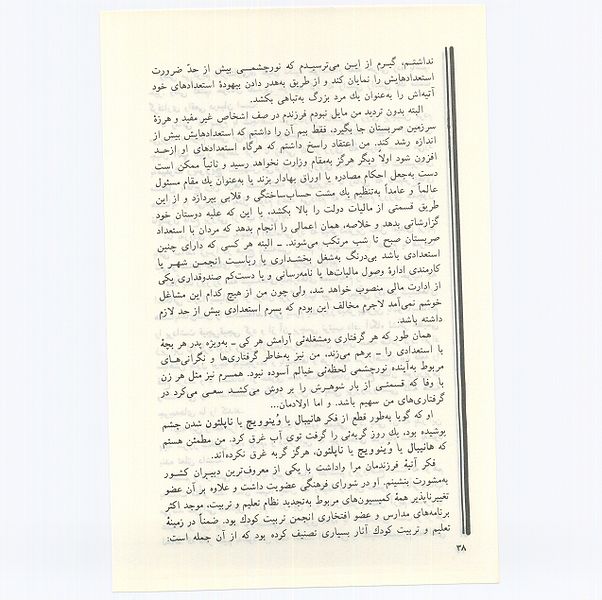 نداشتـم، گیـرم از ایـن می‌ترسیـدم که نورچشمـی بیش از حدّ ضرورت
استعدادهایش را نمایان کند و از طریق به‌هدر دادن بیهودهٔ استعدادهای خود
آتیه‌اش را به‌عنوان یك مرد بزرگ به‌تباهی بکشد.
البته بدون تردید من مایل نبودم فرزندم در صف اشخاص غیر مفید و هرزهٔ
سرزمین صربستان جا بگیرد، فقط بیم آن را داشتم که استعدادهایش بیش از
اندازه رشد کند. من اعتقاد راسخ داشتم که هرگاه استعدادهای او ازحـد
افزون شود اولاً دیگر هرگز به‌مقام وزارت نخواهد رسید و ثانیاً ممکن است
دست به‌جعل احکام مصادره یا اوراق بهادار بزند یا به‌عنوان یك مقام مسئول
عالماً و عامداً به‌تنظیم یك مشت حساب‌ساختگی و قلابی بپردازد و از این
طریق قسمتی از مالیات دولت را بالا بکشد، یا این که علیه دوستان خود
گزارشاتی بدهد و خلاصه، همان اعمالی را انجام بدهد که مردان با استعداد
صربستان صبح تا شب مرتکب می‌شوند. ـ البته هر کسی که دارای چنین
استعدادی باشد بی‌درنگ به‌شغل بخشـداری یا ریاسـت انجمـن شهـر یا
کارمندی ادارهٔ وصول مالیات‌ها یا نامه‌رسانی و یا دست‌کم صندوقداری یکی
از ادارت مالی منصوب خواهد شد، ولی چون من از هیچ کدام این مشاغل
خوشم نمی‌آمد لاجرم مخالف این بودم که پسرم استعدادی بیش از حد لازم
داشته باشد.
همان طور که هر گرفتاری ومشغله‌ئی آرامش هر کی ـ به‌ویژه پدر هر بچهٔ
با استعدادی را ـ برهم می‌زند، من نیز به‌خاطر گرفتاری‌ها و نگرانی‌هـای
مربوط به‌آینده نورچشمی لحظه‌ئی خیالم آسوده نبود. همسرم نیز مثل هر زن
با وفا که قسمتـی از بار شوهـرش را بر دوش می‌کشـد سعـی می‌کرد در
گرفتاری‌های من سهیم باشد. و اما اولادمان...
او که گویا به‌طور قطع از فکر هانیبال یا وْینوویچ یا ناپلئون شدن چشم
پوشیده بود، یك روز گربه‌ئی را گرفت توی آب غرق کرد. من مطمئن هستم
که هانیبال یا وْینوویچ یا ناپلئون، هرگز گربه غرق نکرده‌اند.
فکر آتیهٔ فرزندمان مرا واداشت با یکی از معروف‌ترین دبیـران کشـور
به‌مشورت بنشینم. او در شورای فرهنگی عضویت داشت و علاوه بر آن عضو
تغییرناپذیر همهٔ کمیسیون‌های مربوط به‌تجدید نظام تعلیم و تربیت، موجد اکثر
برنامه‌های مدارس و عضو افتخاری انجمن تربیت کودك بود. ضمناً در زمینهٔ
تعلیم و تربیت کودك آثار بسیاری تصنیف کرده بود که از آن جمله است:
۳۸